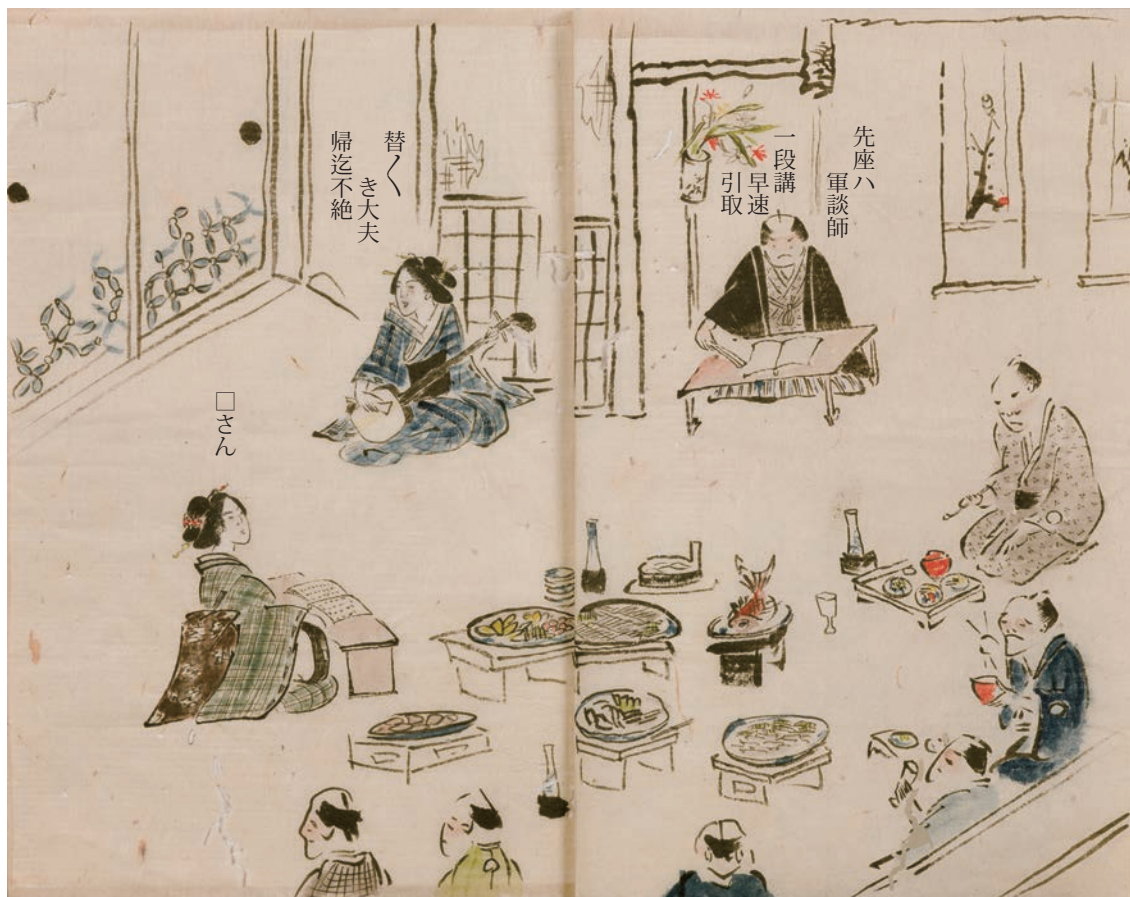 先座ハ
軍談師
一段講
早速
引取
替〱
き大夫
帰迄不絶
□さん